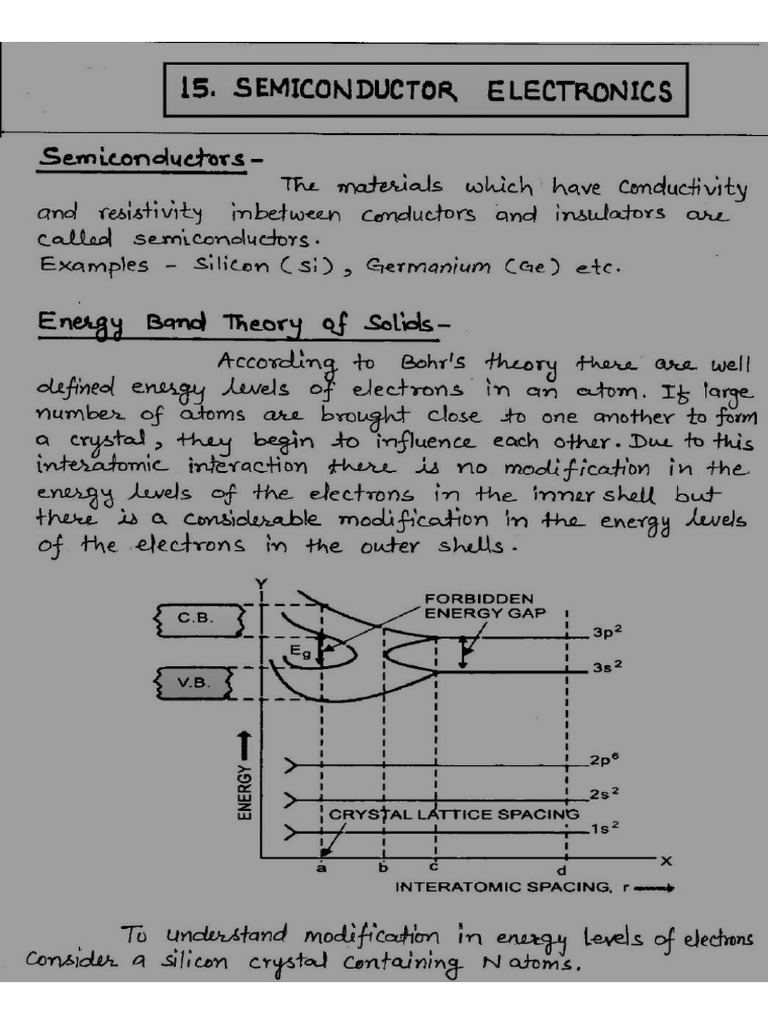 15. SEMICONDUCTOR ELECTRONICS
Semiconductors-
The materials which have conductivity
and resistivity inbetween conductors and insulators are
called semiconductors.
Examples - Silicon (Si), Germanium (Ge) etc.
Energy Band Theory of Solids-
According to Bohr's theory there are well
defined energy levels of electrons in an atom. If large
number of atoms are brought close to one another to form
a crystal, they begin to influence each other. Due to this
interatomic interaction there is no modification in the
energy levels of the electrons in the inner shell but
there is a considerable modification in the energy levels
of the electrons in the outer shells.
Y
FORBIDDEN
ENERGY GAP
C.B.
3p²
Eg
3s²
V.B.
2p⁶
ENERGY
2s²
CRYSTAL LATTICE SPACING
1s²
X
a b c d
INTERATOMIC SPACING, r
To understand modification in energy levels of electrons
Consider a silicon crystal containing N atoms.